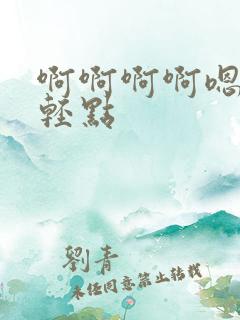 啊啊啊啊嗯
輕點
劉青
未经同意禁止转载